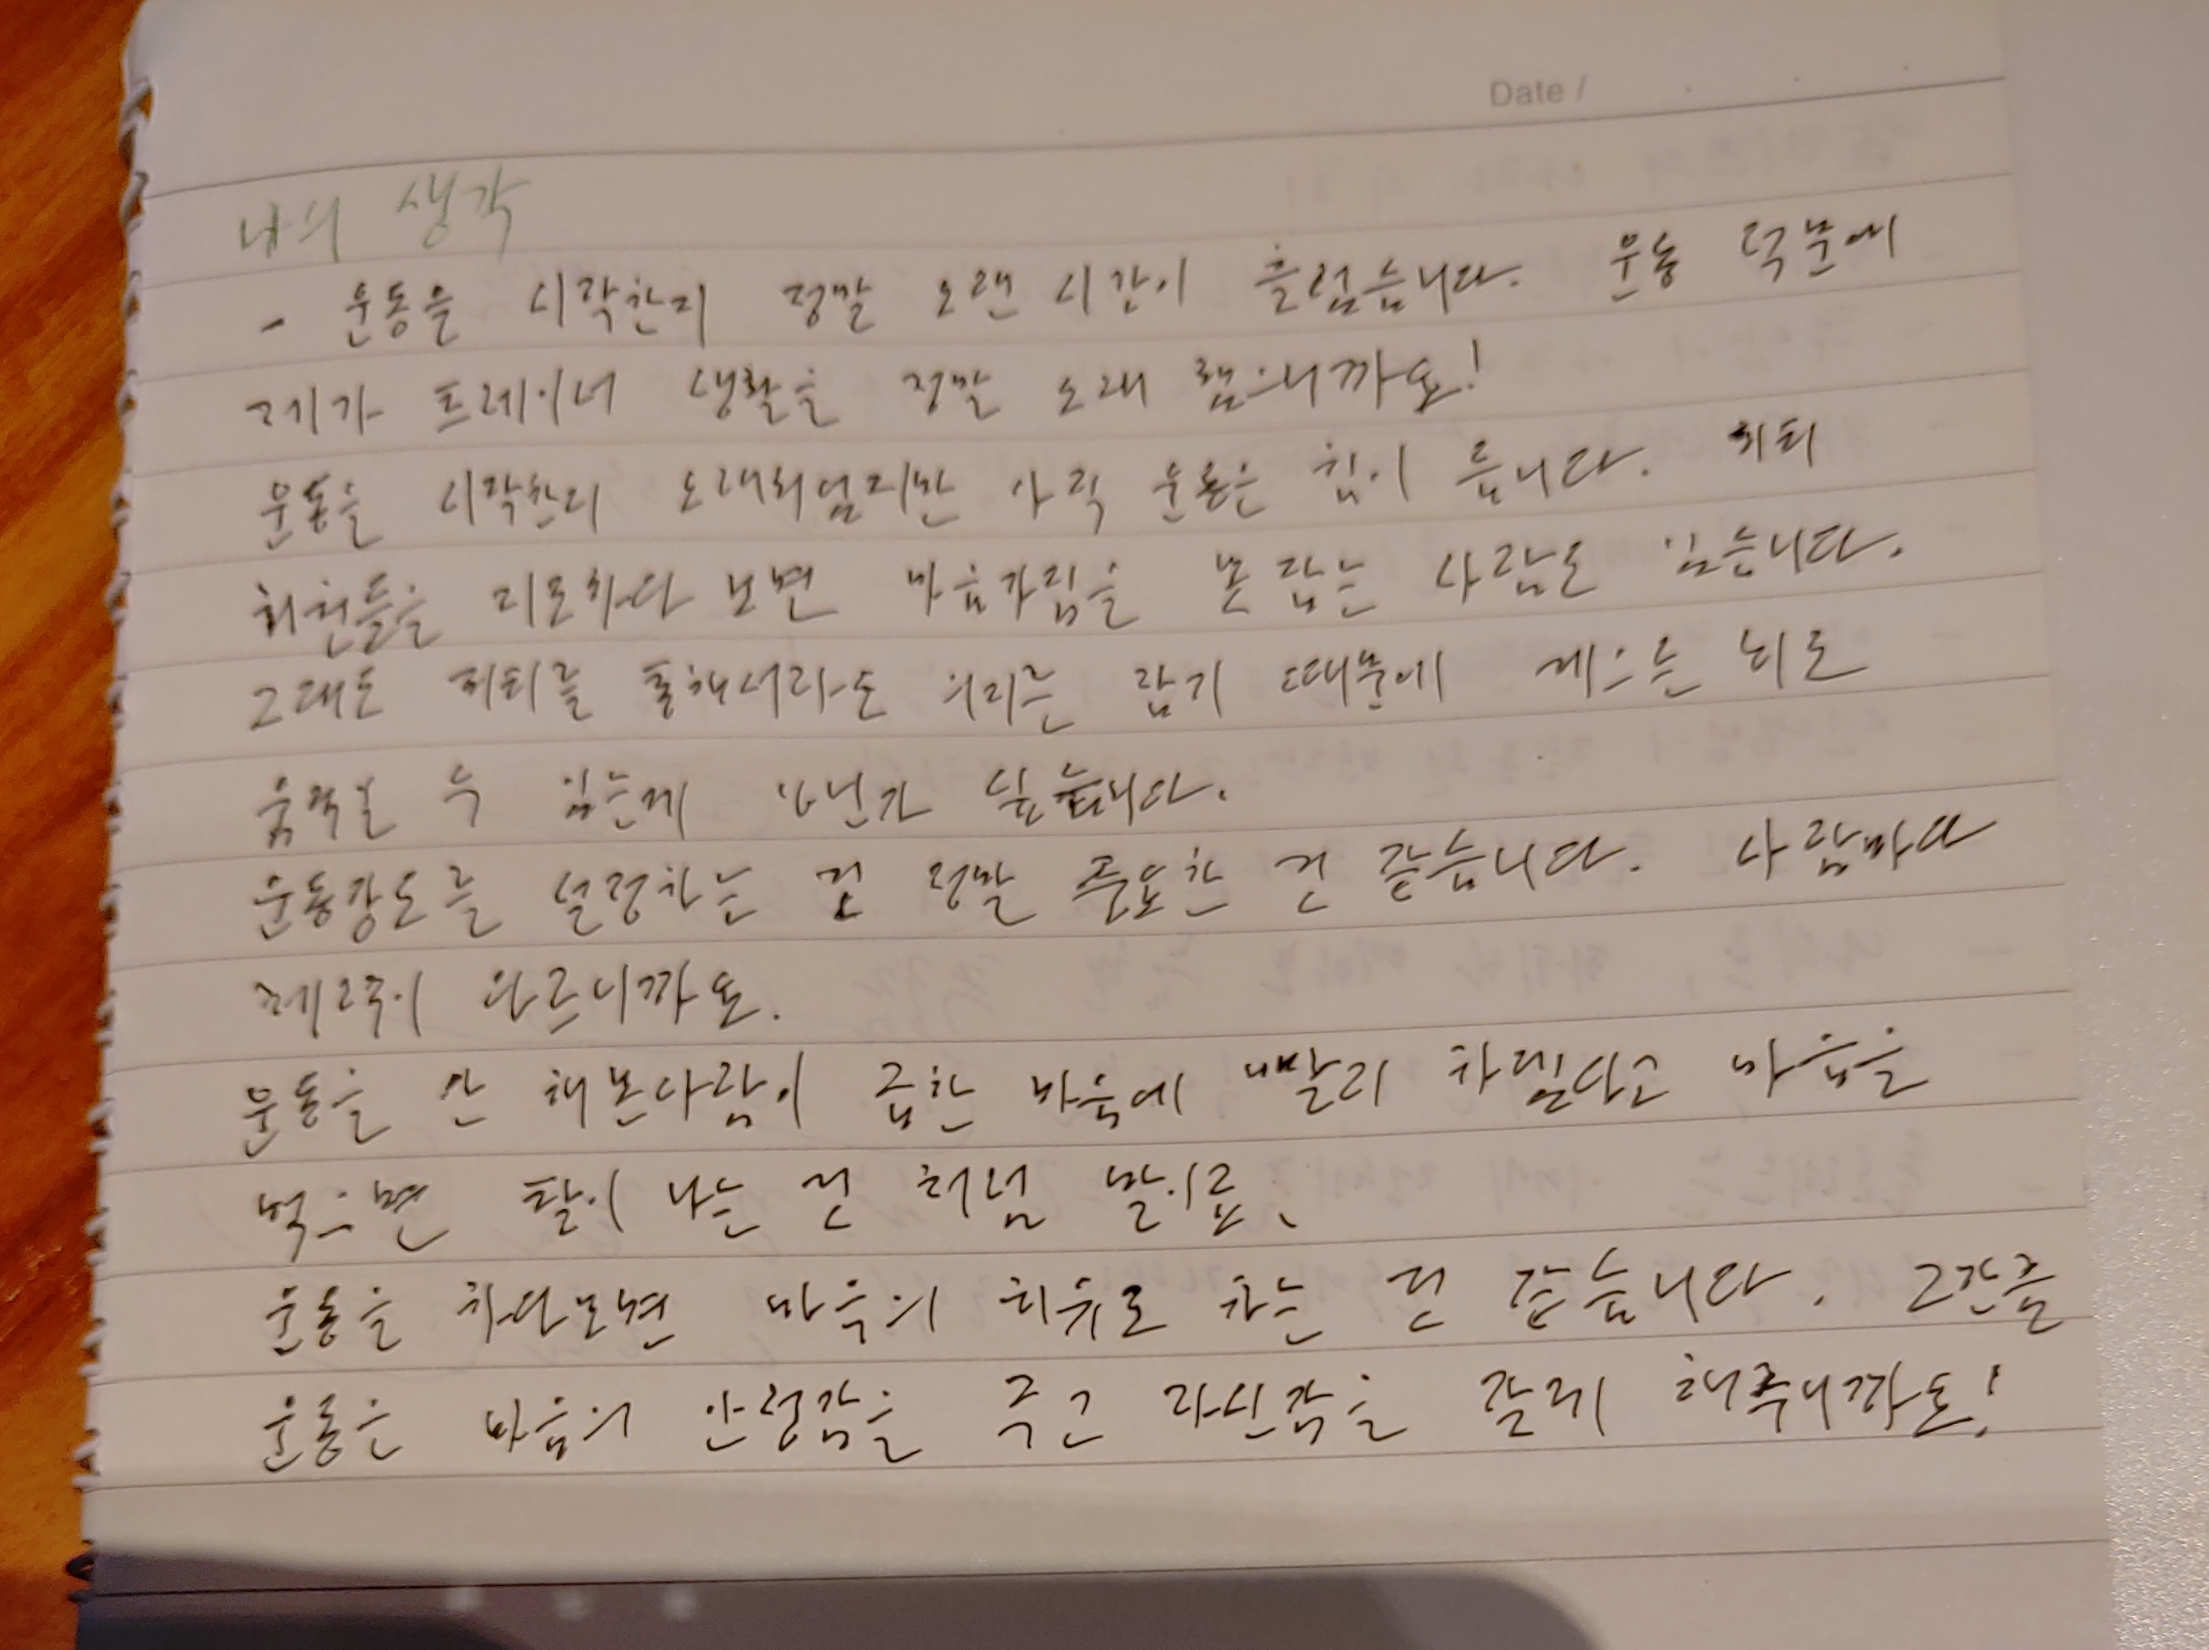 Date /
나의 생각
- 운동을 시작한지 정말 오랜 시간이 흘렀습니다. 운동 덕분에
제가 트레이너 생활을 정말 오래 했으니까요!
운동을 시작한지 오래되었지만 아직 운동은 힘이 듭니다. 피티
회원들을 지도하다 보면 마음가짐을 못 잡는 사람도 있습니다.
그래도 피티를 통해서라도 의지를 잡기 때문에 헬스는 뇌로
움직일 수 있는게 아닌가 싶습니다.
운동강도를 설정하는 건 정말 중요한 건 같습니다. 사람마다
체력이 다르니까요.
운동을 안 해본사람이 급한 마음에 빨리 하겠다고 마음을
먹으면 탈이 나는 것 처럼 말이죠.
운동을 하다보면 마음의 치유도 하는 것 같습니다. 그만큼
운동은 마음의 안정감을 주고 자신감을 갖게 해주니까요!